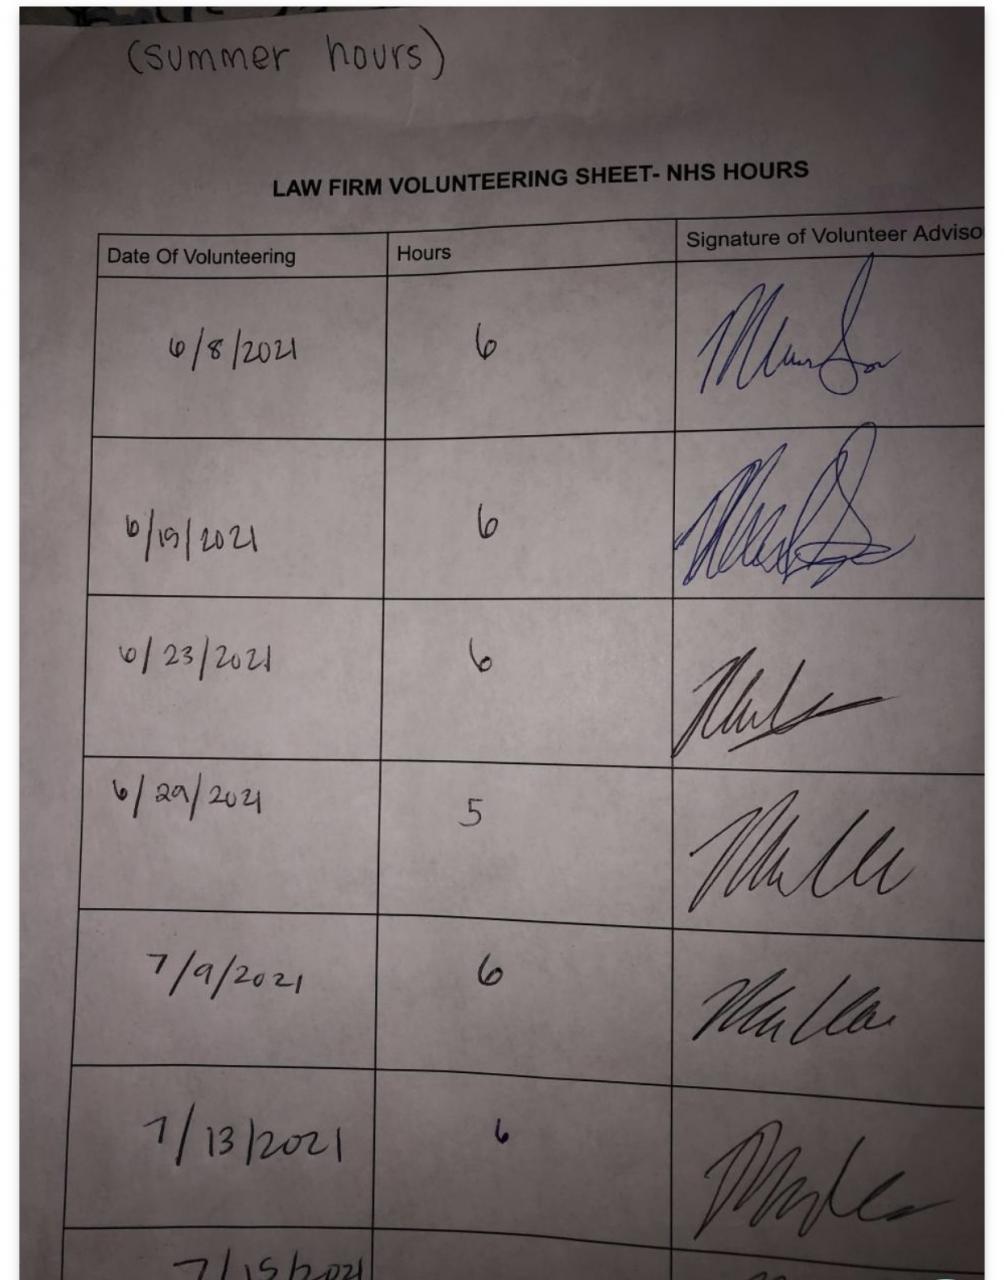 (summer hours)
LAW FIRM VOLUNTEERING SHEET- NHS HOURS
Date Of Volunteering Hours Signature of Volunteer Adviso
6/8/2021 6
6/19/2021 6
6/23/2021 6
6/29/2021 5
7/9/2021 6
7/13/2021 6
7/15/2021